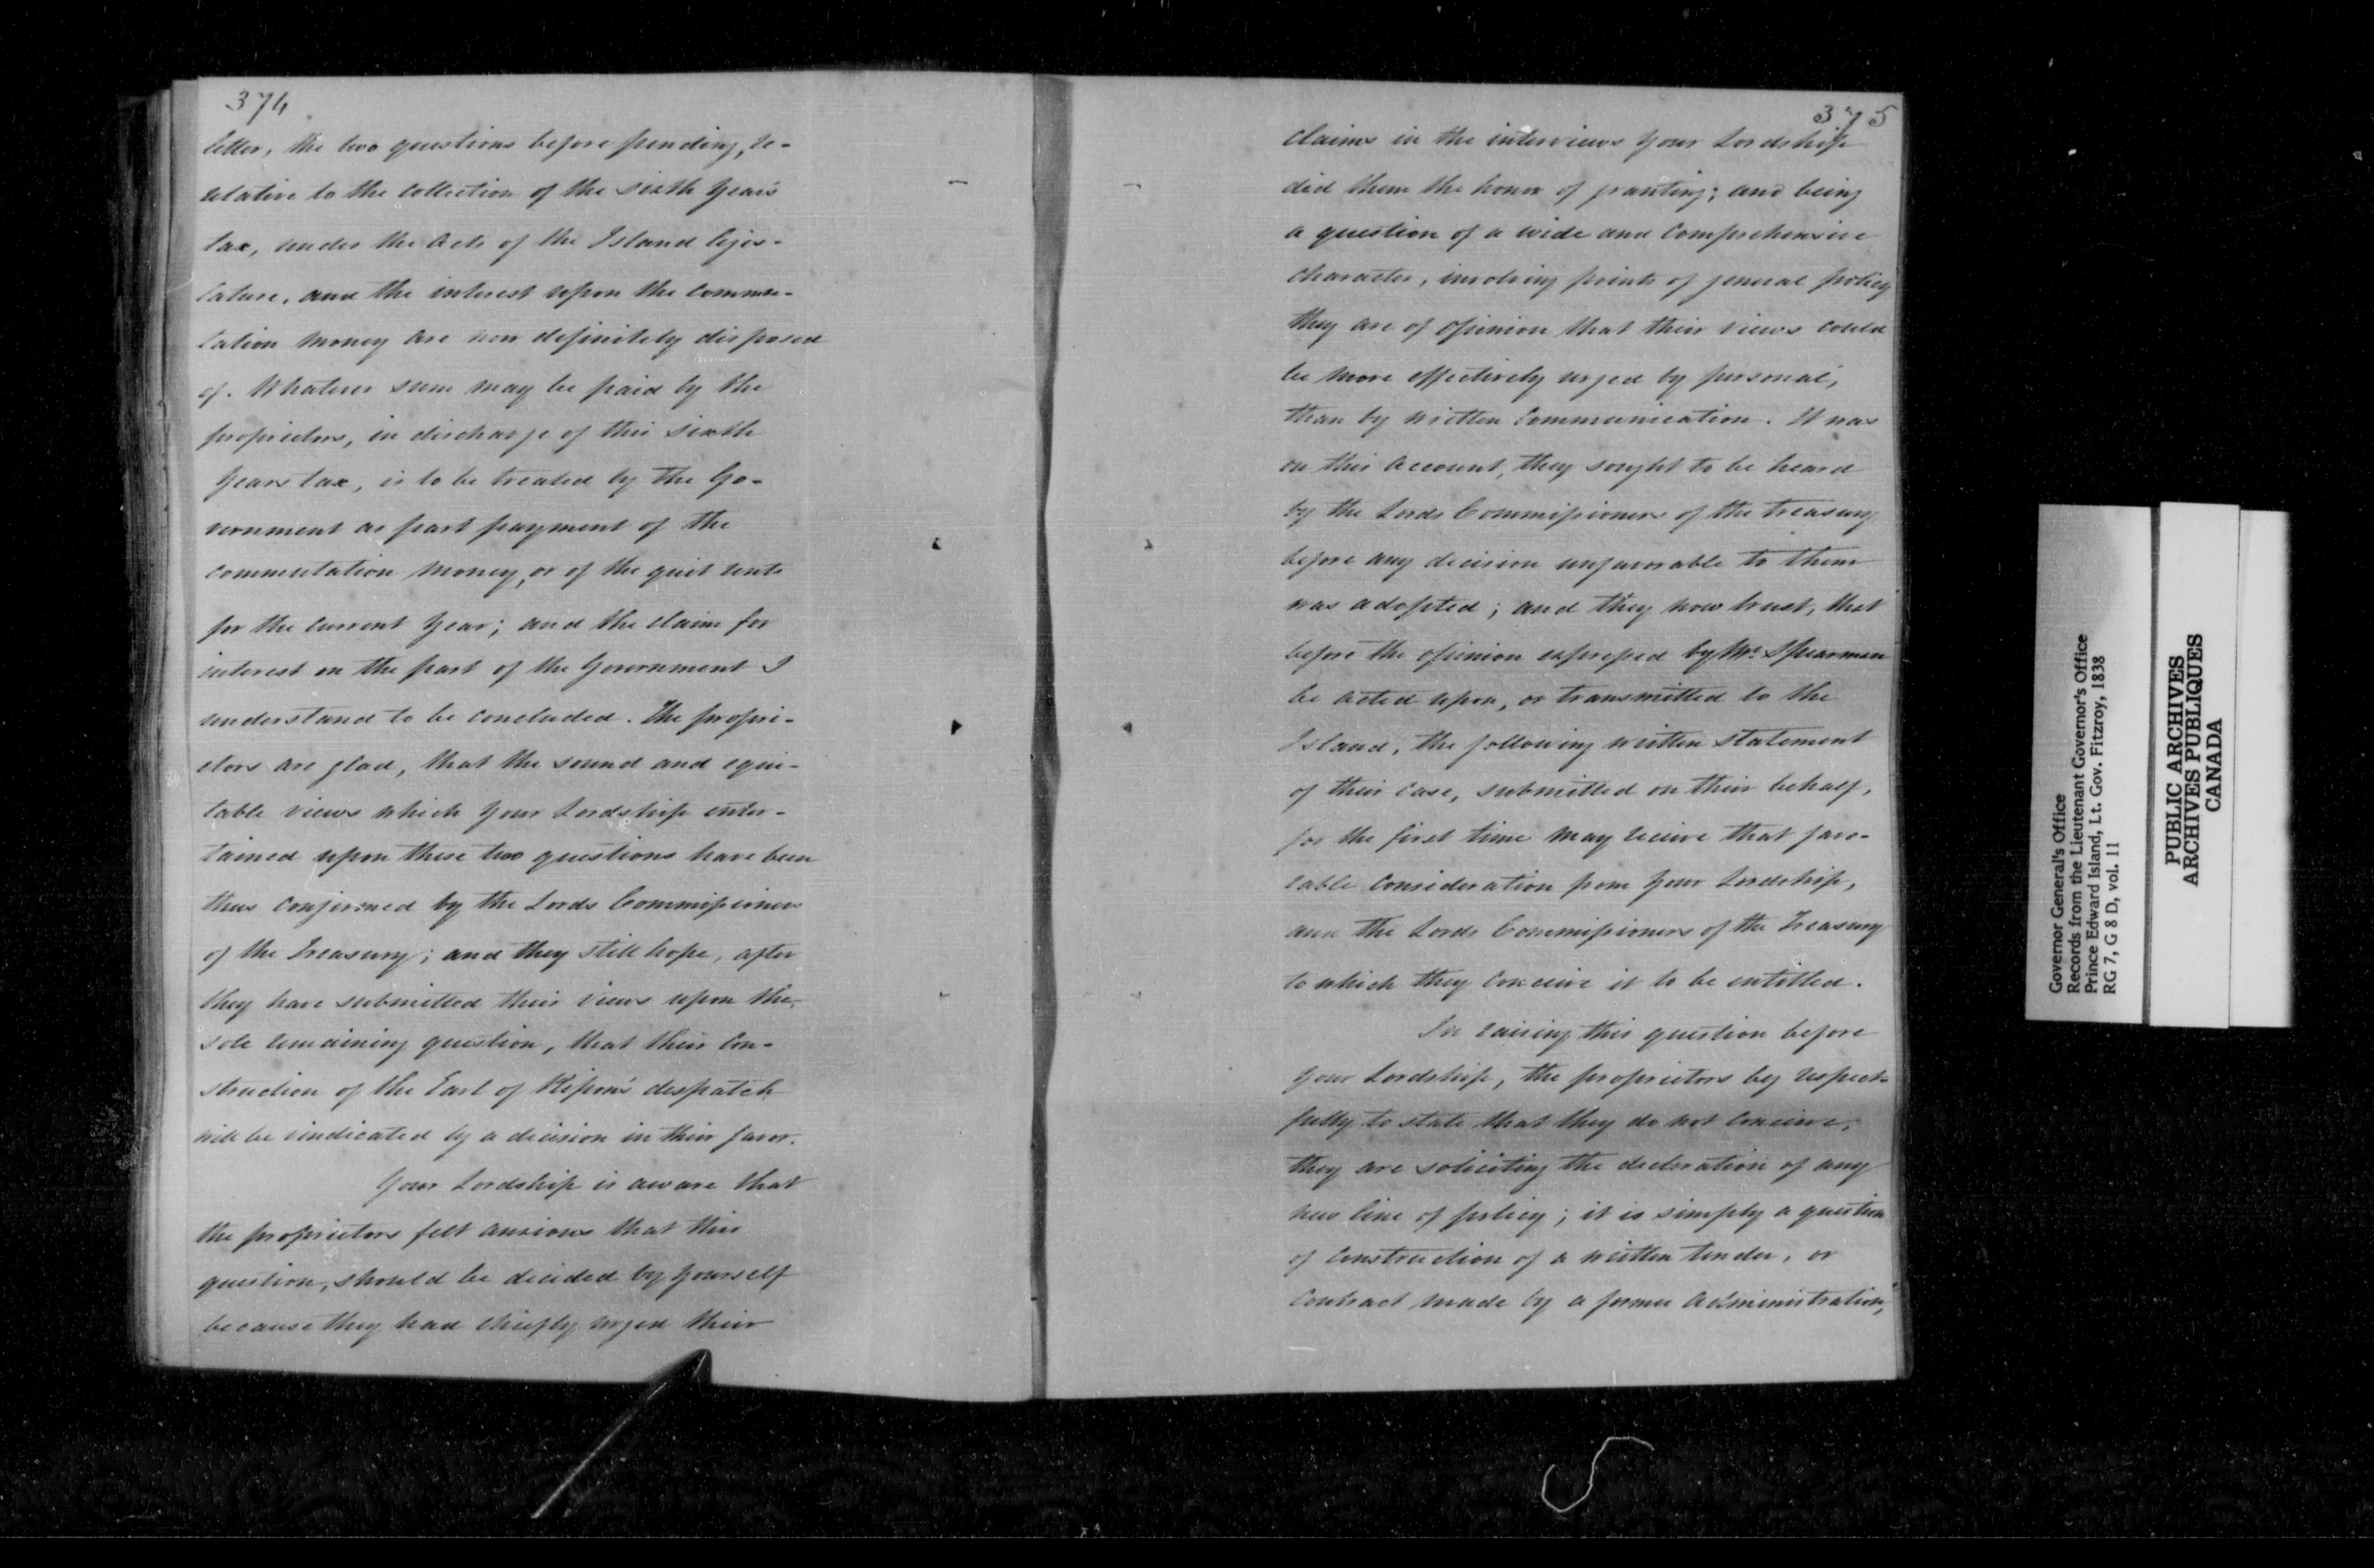 374
letter, the two questions before pending, re-
relative to the collection of the sixth Year's
tax, under the Acts of the Island legis-
lature, and the interest upon the commu-
tation money are now definitely disposed
of. Whatever sum may be paid by the
proprietors, in discharge of this sixth
Years tax, is to be treated by the Go-
vernment as part payment of the
commutation money, or of the quit rents
for the current Year; and the claim for
interest on the part of the Government I
understand to be concluded. The propri-
etors are glad, that the sound and equi-
table views which Your Lordship enter-
tained upon these two questions have been
thus confirmed by the Lords Commissioners
of the Treasury; and they still hope, after
they have submitted their views upon the
sole remaining question, that their con-
struction of the Earl of Ripon's despatch
will be vindicated by a decision in their favor.
Your Lordship is aware that
the proprietors felt anxious that this
question, should be decided by Yourself
because they had chiefly urged their
375
claims in the interviews Your Lordship
did them the honor of granting; and being
a question of a wide and comprehensive
character, involving points of general policy
they are of opinion that their views could
be more effectively urged by personal,
than by written communication. It was
on this account, they sought to be heard
by the Lords Commissioners of the treasury
before any decision unfavorable to them
was adopted; and they now trust, that
before the opinion expressed by Mr. Spearman
be acted upon, or transmitted to the
Island, the following written statement
of their case, submitted on their behalf,
for the first time may receive that favo-
rable consideration from Your Lordship,
and the Lords Commissioners of the Treasury
to which they conceive it to be entitled.
In raising this question before
Your Lordship, the proprietors beg respect-
fully to state that they do not conceive,
they are soliciting the declaration of any
new line of policy; it is simply a question
of construction of a written tender, or
contract made by a former Administration,
Governor General's Office
Records from the Lieutenant Governor's Office
Prince Edward Island, Lt. Gov. Fitzroy, 1838
RG 7, G 8 D, vol. 11
PUBLIC ARCHIVES
ARCHIVES PUBLIQUES
CANADA